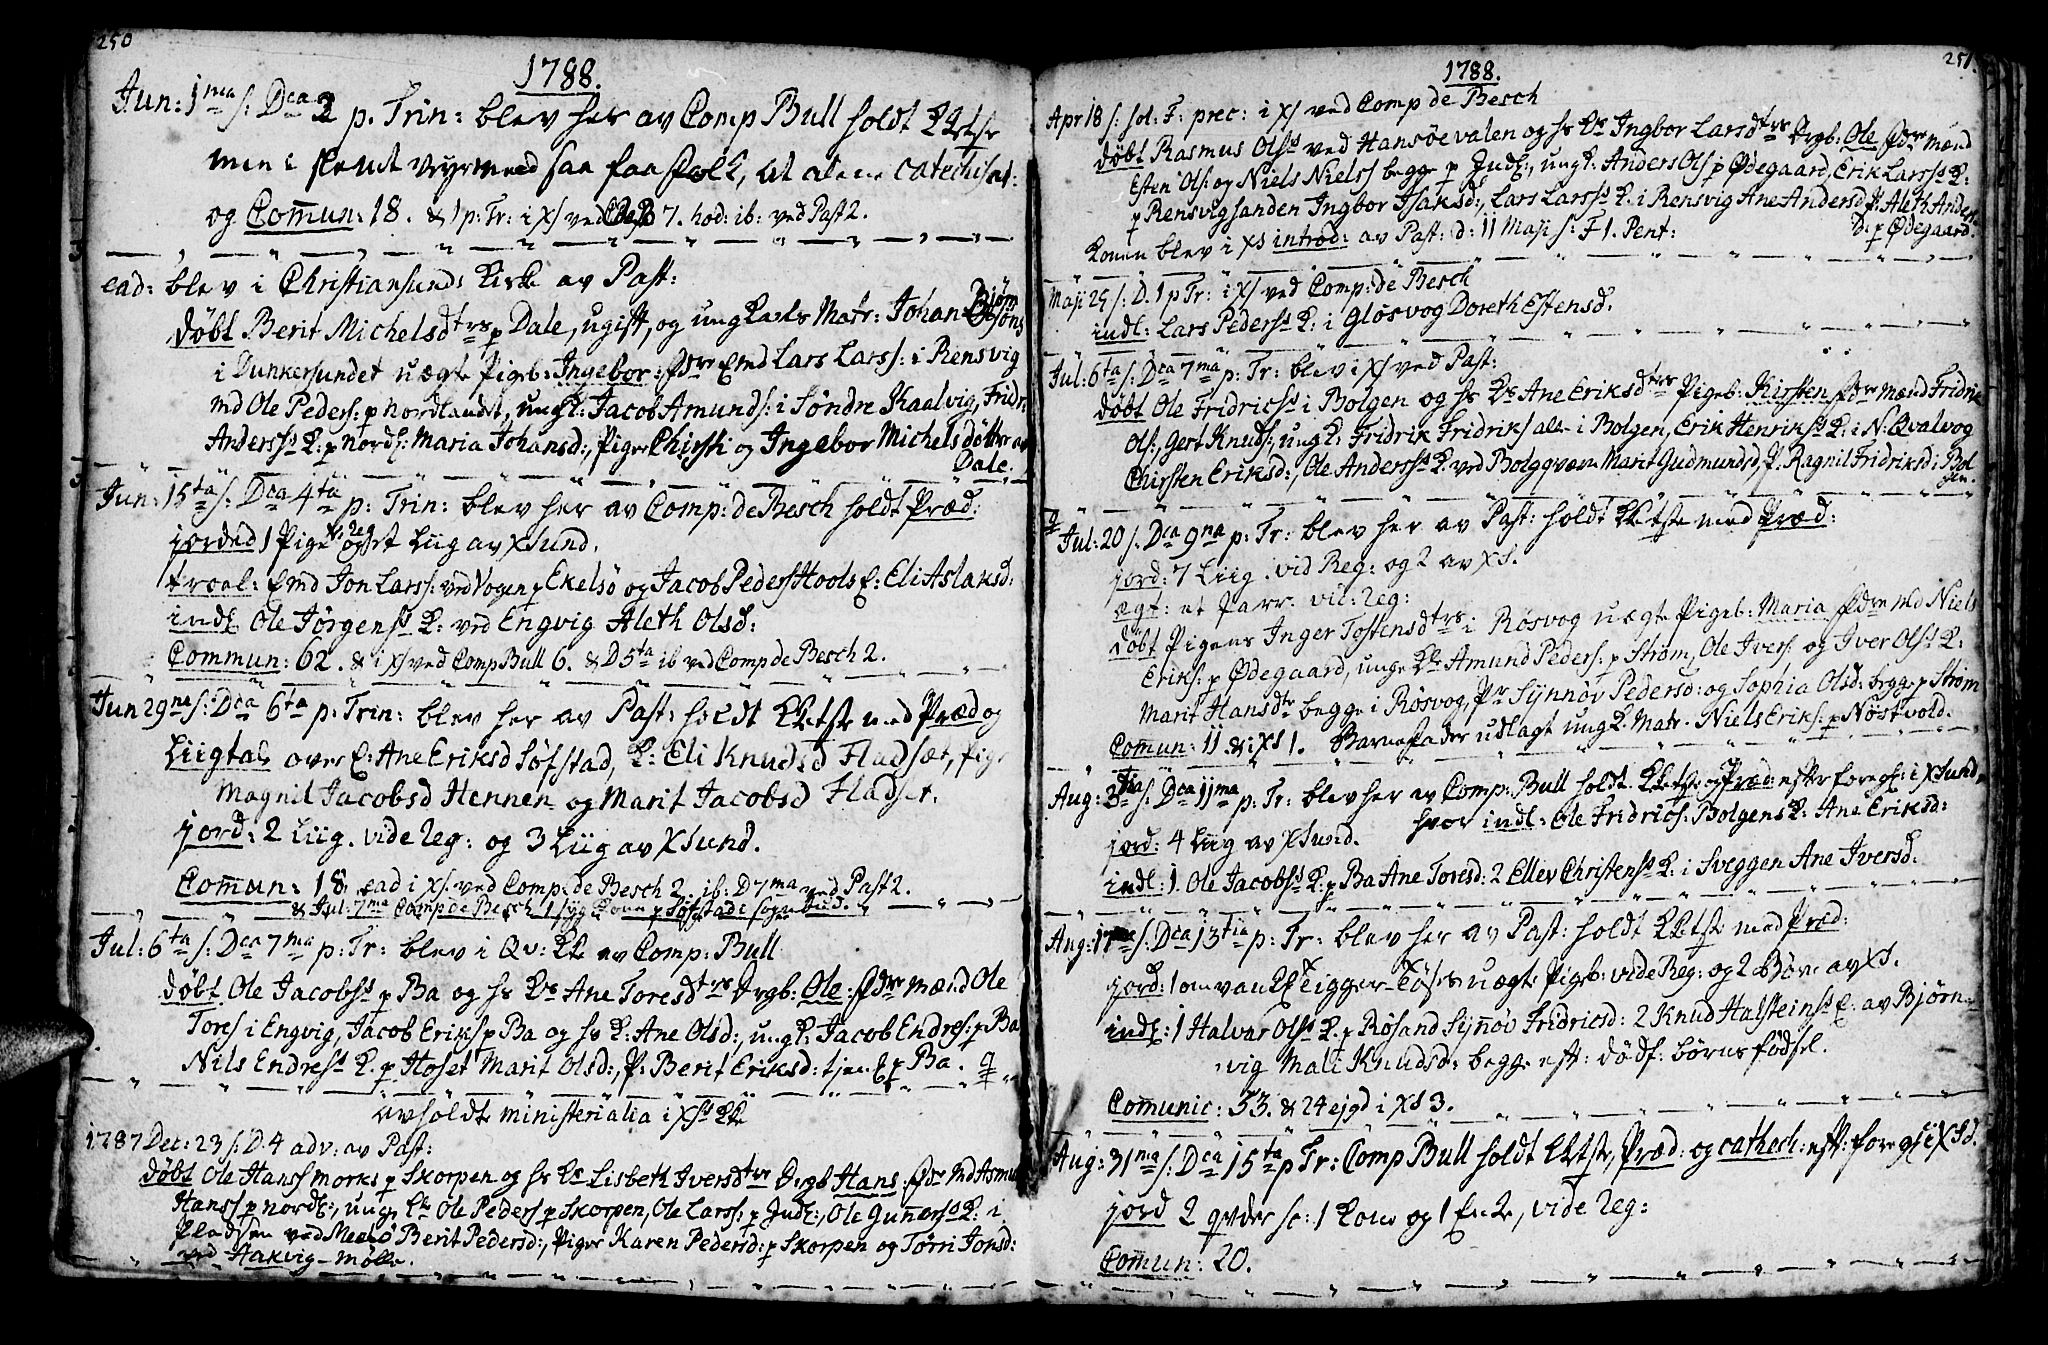 250
1788.
Jun: 1ma s: Dca 2 p. Trin: blev her av Comp Bull holdt
men i slemt Vejr med saa faa folk, at alene catechisat:
og Comun: 18. & 1 p: Tr: i Xs ved 7. hod: ib: ved Past 2.
ead: blev i Christiansunds Kirke av Past:
døbt Berit Michelsdtrs p Dale, ugift, og ung Karls Matr: Johan Bjørnsøns
i Dunkersundet uægte Pigeb: Ingebor: fdre Emd Lars Larss: i Rensvig
md Ole Peders: p Nordlandet, ungk: Jacob Amunds: i Søndre Kaalvig, Fridr:
Anderss K: p Nordl: Maria Johansd:, Piger Chirsti og Ingebor Michelsdøttre av
Dale.
Jun: 15ta s: Dca 4ta p: Trin: blev her av Comp: de Besch holdt Præd:
jorded 1 Pige v: Reg og et Liig av XSund.
troel: Emd Jon Larss: ved Vogen p Ekelsö og Jacob Peders Hools E: Eli Aslaksd:
indl Ole Jørgenss K: ved Engvig Aleth Olsd:
Commun: 62. & i Xs ved Comp Bull 6. & D 5ta ib ved Comp de Besch 2.
Jun 29na s: Dca 6ta p: Trin: blev her av Past: holdt KKtste med Præd og
Liigtale over E: Ane Eriksd Søfstad, K: Eli Knudsd Fladsæt, Pige
Magnil Jacobsd Hennen og Marit Jacobsd Fladset.
jord: 2 Liig. vide Reg: og 3 Liig av XSund.
Comun: 18. ead i Xs. ved Comp: de Besch 2. ib: D 7ma ved Past 2.
& Jul: 7ma Comp de Besch 1 syg Kone p Søfstad i Sognebud.
Jul: 6ta s: Dca 7ma p: Tr: blev i Qv: KK av Comp: Bull
døbt Ole Jacobss p Ba og hs Ks Ane Toresdtrs Drgb: Ole: fdre Mænd Ole
Tores i Engvig, Jacob Eriks p Ba og hs K: Ane Olsd:, ungk: Jacob Endres: p Ba
Nils Endress K. p Hoset Marit Olsd:, P: Berit Eriksd: tjen: p Ba.
avholdte ministerialia i Xss KK
1787 Dec: 23 s: D. 4 adv: av Past:
døbt Ole Hanss Morks p Skorpen og hs Ks Lisbeth Iversdtrs Drgb Hans fdre Md Asmu
Hanss p Nordl:, unge Kle Ole Peders p Skorpen, Ole Larss: p Indl:, Ole Gunerss K: i
Pladsen ved Meelø Berit Pedersd:, Piger Karen Pedersd: p Skorpen og Tørri Jonsd:
ved Hakvig-mølle.
251.
1788.
Apr 18 s: sol: F: prec: i Xs ved Comp de Besch
døbt Rasmus Olss ved Hansøevalen og hs Ks Ingbor Larsdtrs Drgb: Ole fdre Mænd
Esten Ols: og Niels Niels: begge p Indl:, ungk: Anders Ols p Ødegaard, Erik Larss K:
p Rensvigsanden Ingbor Isaksd:, Lars Larss K. i Rensvig Ane Andersd, P. Aleth Anders
D. p Ødegaard.
Konen blev i Xs introd: av Past: d: 11 Maji s: F 1. Pent:
Maji 25 s: D. 1 p Tr: i Xs ved Comp: de Besch
indl: Lars Pederss K: i Gløsvog Doreth Estensd.
Jul: 6ta s: Dca 7ma p: Tr: blev i Xs ved Past:
døbt Ole Fridrics i Bolgen og hs Ks Ane Eriksdtrs Pigeb: Kirsten fdre Mænd Fridric
Ols:, Gert Knuds:, ungk: Fridrik Fridriks ale i Bolgen, Erik Henrikss K: i N: Qvalvog
Chirsten Eriksd:, Ole Anderss K. ved Bolgqværn Marit Gudmundsd, P. Ragnil Fridriksd: i Bol
gen.
Jul: 20 s: Dca 9na p: Tr: blev her av Past: holdt KKtste med Præd:
jord: 7 Liig. vid Reg: og 2 av XS.
ægt: et Parr. vic: Reg:
døbt Pigens Inger Tostensdtrs i Røsvog uægte Pigeb: Maria fdre Md Niels
Eriks: p Ødegaard, unge Kle Amund Peders: p Strøm, Ole Ivers: og Iver Olss K:
Marit Hansdtr begge i Røsvog, Pr Synnøv Pedersd: og Sophia Olsd: begge p Strøm
Comun: 11 & i XS 1. Barnefader udlagt ungk: Matr. Niels Eriks: p Nøstvold.
Aug: 3tia s: Dca 11ma p: Tr: blev her av Comp: Bull holdt KKtste og Præd: efter foregs: i XSund,
hvor indl: Ole Fridrics: Bolgens K: Ane Eriksd:
jord: 4 Liig av XSund.
indl: 1. Ole Jacobss K: p Ba Ane Toresd: 2 Ellev Christenss K: i Sveggen Ane Iversd.
Aug: 17ma s: Dca 13tia p: Tr: blev her av Past: holdt KKtste med Præd:
jord: 1 uægte Pigeb: vide Reg: og 2 Børn av XS.
indl: 1 Halvar Olss K. p Røsand Synøv Fridricsd: 2 Knud Halsteinss E: av Bjørn-
vig Mali Knudsd: begge eft: dødf: børns fødsel.
Comunic: 53. & 24 ejgd i XS 3.
Aug: 31ma s: Dca 15ta p Tr: Comp Bull holdt KKtste, Præd: og cathech: eft: foregs i XSd.
jord 2 qvder sc: 1 Kone og 1 Enke, vide Reg:
Comun: 20.